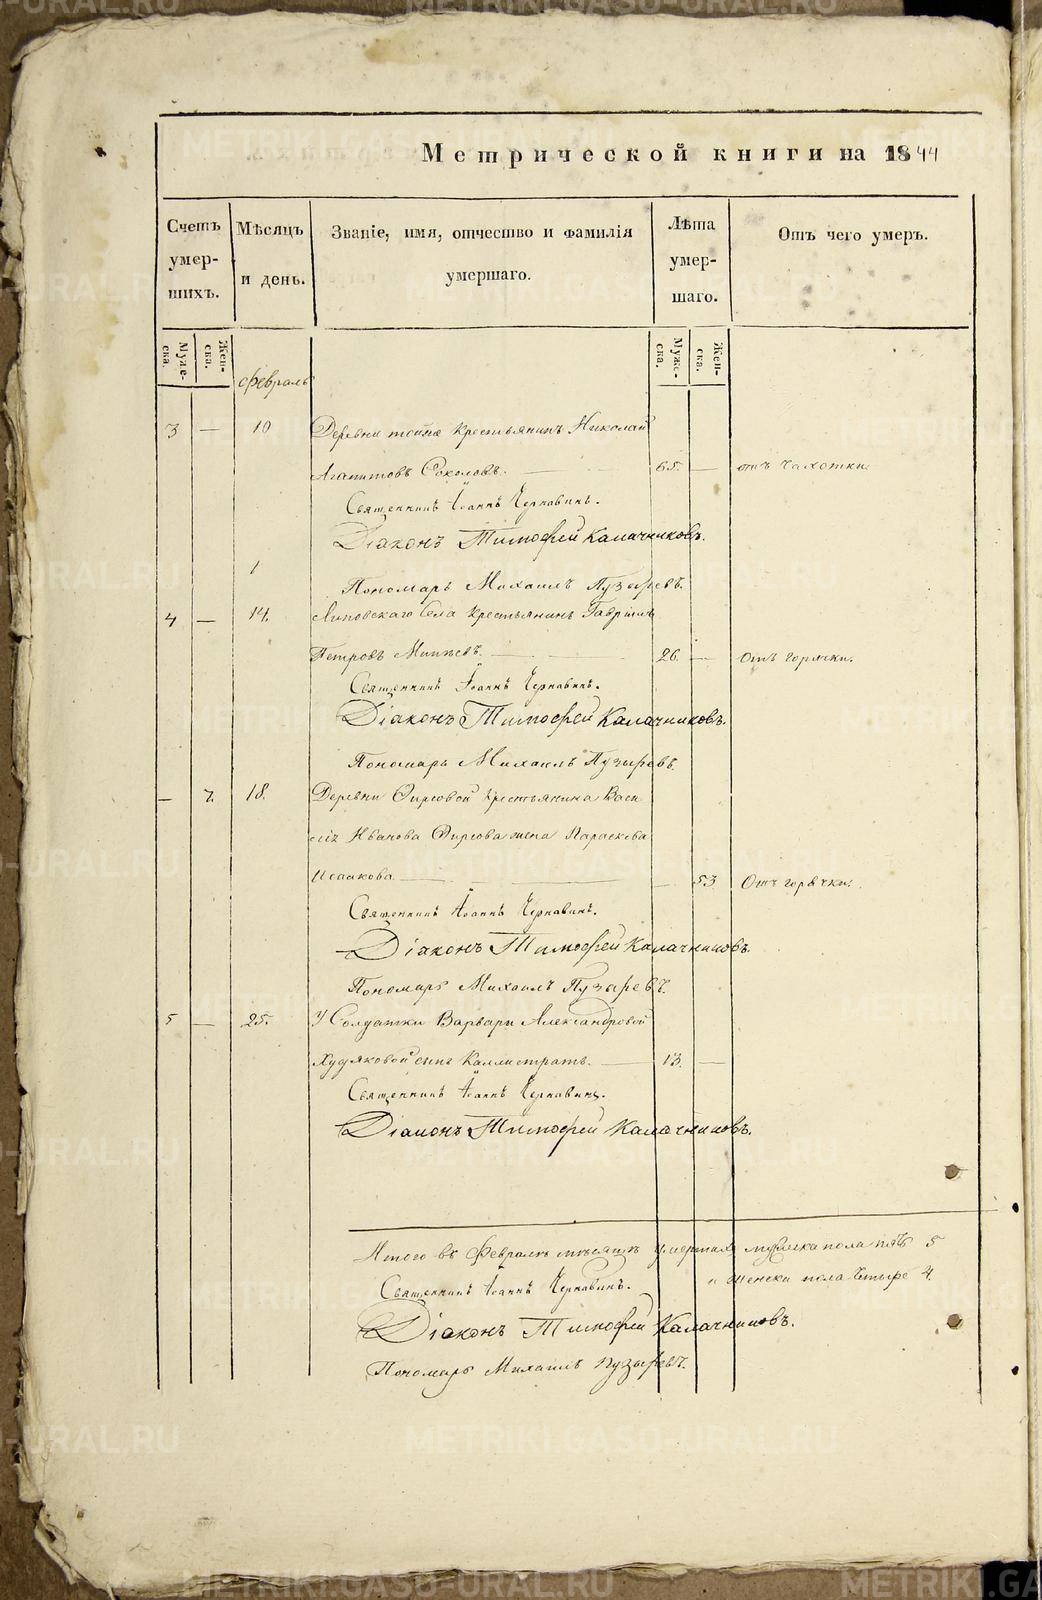 Метрической книги на 1844
Счетъ умер- шихъ.
Мѣсяцъ и день.
Званіе, имя, отчество и фамилія умершаго.
Лѣта умер- шаго.
Отъ чего умеръ.
Муже- ска.
Жен- ска.
Муже- ска.
Жен- ска.
февраль
3 — 10 Деревни тойже крестьянинъ Николай
Агапитовъ Соколовъ. — 65. — отъ чахотки
Священникъ Іоаннъ Чернавинъ.
Діаконъ Тимофей Калачниковъ.
Пономарь Михаилъ Пузыревъ.
4 — 14. Липовскаго села крестьянинъ Гавріилъ
Петровъ Минѣевъ. — 26. — Отъ горячки.
Священникъ Іоаннъ Чернавинъ.
Діаконъ Тимофей Калачниковъ.
Пономарь Михаилъ Пузыревъ.
— 18. Деревни Фирсовой крестьянина Васи
лія Иванова Фирсова жена Параскева
Исакова — 53 Отъ горячки.
Священникъ Іоаннъ Чернавинъ.
Діаконъ Тимофей Калачниковъ.
Пономарь Михаилъ Пузыревъ.
5 — 25. У Солдатки Варвары Александровой
Худяковой сынъ Каллистратъ. — 13. —
Священникъ Іоаннъ Чернавинъ.
Діаконъ Тимофей Калачниковъ.
Итого въ Февралѣ мѣсяцѣ умершихъ мужеска пола пять 5
и женска пола четыре 4.
Священникъ Іоаннъ Чернавинъ.
Діаконъ Тимофей Калачниковъ.
Пономарь Михаилъ Пузыревъ.
METRIKI.GASO-URAL.RU